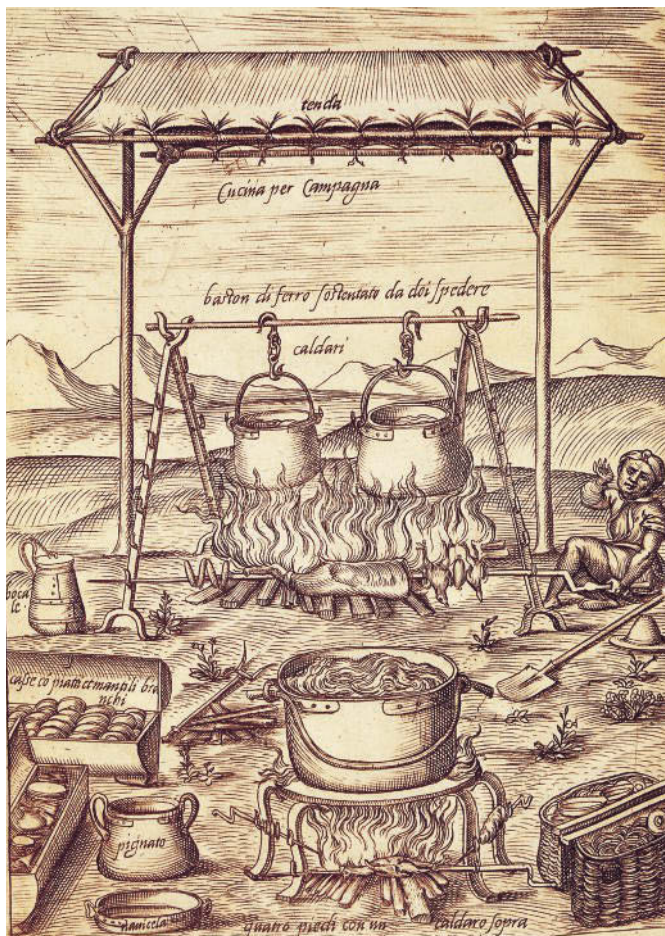 tenda
Cucina per Campagna
baston di ferro sostentato da doi spedere
caldari
boca
le
casse co piati et mantili bia
nchi
pignato
navicela
quatro piedi con un caldaro sopra